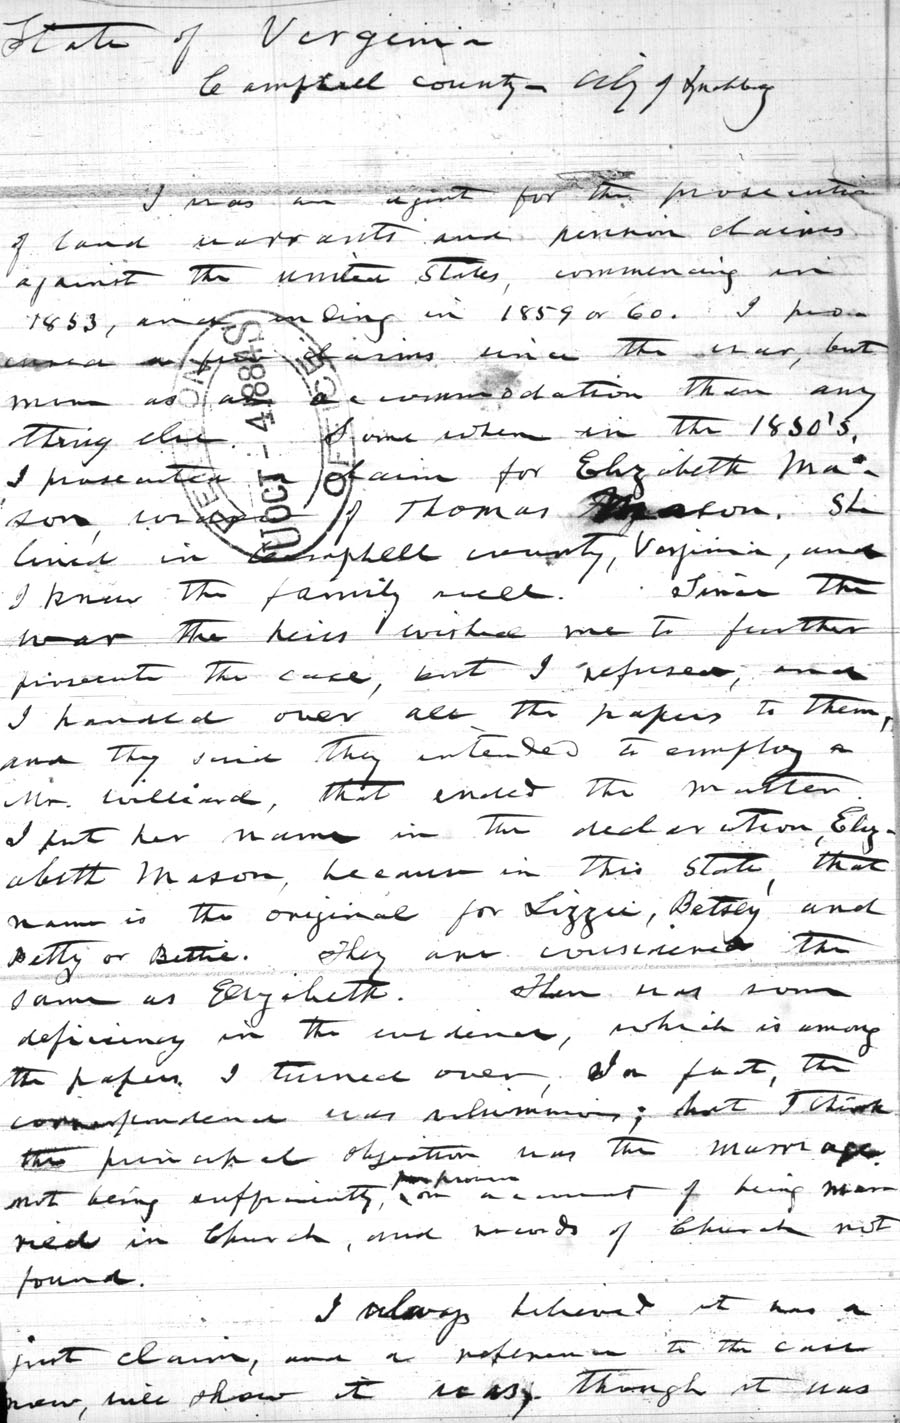 State of Virginia
Campbell county - City of Lynchburg
I was an agent for the prosecution
of land warrants and pension claims
against the united States, commencing in
1853, and ending in 1859 or 60. I pro-
cured a few claims since the war, but
more as an accommodation than any
thing else. Some when in the 1850's,
I prosecuted a claim for Elizabeth Ma-
son, widow of Thomas Mason. She
lived in Campbell county, Virginia, and
I knew the family well. Since the
war the heirs wished me to further
prosecute the case, but I refused, and
I handed over all the papers to them,
and they said they intended to employ a
Mr. Williard, that ended the matter.
I put her name in the declaration, Eliz-
abeth Mason, because in this State, that
name is the original for Lizzie, Betsey and
Betty or Bettie. They are considered the
same as Elizabeth. There was some
deficiency in the evidence, which is among
the papers I turned over, In fact, the
correspondence was voluminous; but I think
the principal objection was the marriage
not being sufficiently, proven on account of being mar
ried in Church, and records of Church not
found.
I always believed it was a
just claim, and a reference to the case
now, will show it was, though it was
U.S. PENSION OFFICE
OCT - 4 1884